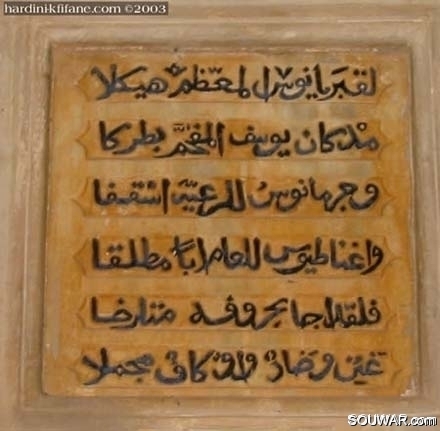 hardinikfifane.com ©2003
لقبريانوس المعظم هيكلا
مذ كان يوسف المفخم بطركا
وجرمانوس للرعية اسقفا
واغناطيوس للعام ابا مطلقا
فلقد اجا بحروفه متارخا
غين وضاد واو كاف مجملا
SOUWAR.com